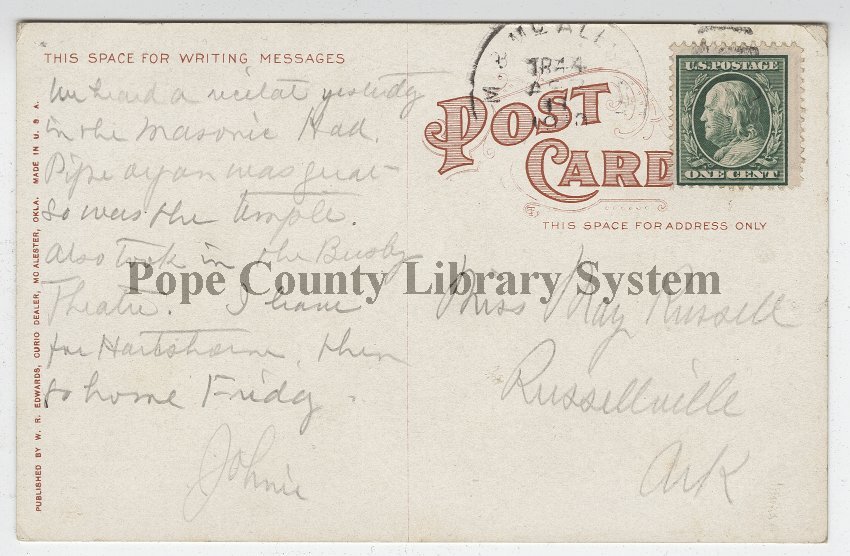 THIS SPACE FOR WRITING MESSAGES
We heard a recital yesterday
in the Masonic Had.
Pipe organ was great
So was the temple.
Also took in the Busby
Theatre. I leave
for Hartshorne, then
to home Friday.
Johnie
PUBLISHED BY W. R. EDWARDS, CURIO DEALER, MC ALESTER, OKLA. MADE IN U. S. A.
POST
CARD
THIS SPACE FOR ADDRESS ONLY
U.S. POSTAGE
ONE CENT
Miss May Russell
Russellville
Ark
Pope County Library System